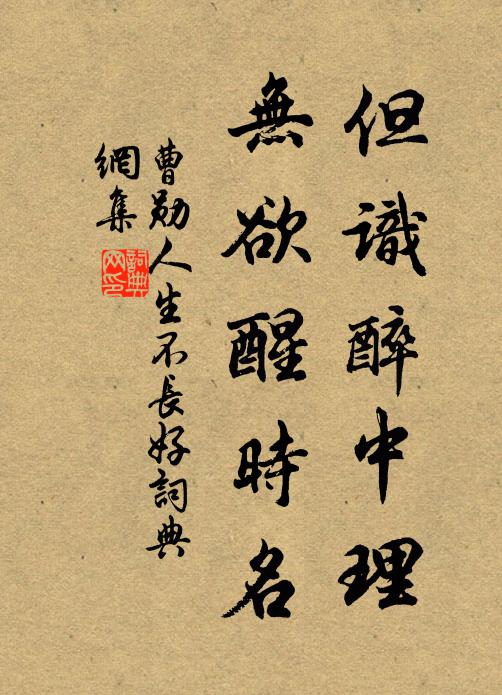 但識醉中理
無欲醒時名
曹勛人生不長好詞典
網集
詞典
网印